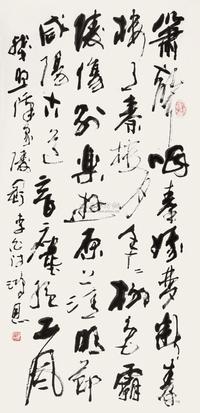 簫聲咽秦娥夢斷秦
樓月秦樓月年年柳色霸
陵傷別樂遊原上清秋節
咸陽古道音塵絕西風
殘照漢家陵闕 李白詞